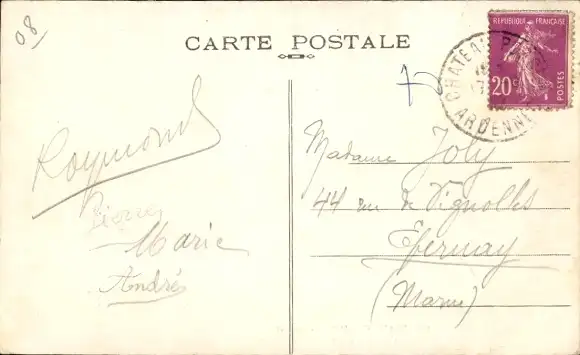 08
CARTE POSTALE
REPUBLIQUE FRANÇAISE
20c
POSTES
CHATEAU P
ARDENNE
Raymond
Pierre
Marie
André
Madame Joly
44 rue de Vignolles
Epernay
(Marne)